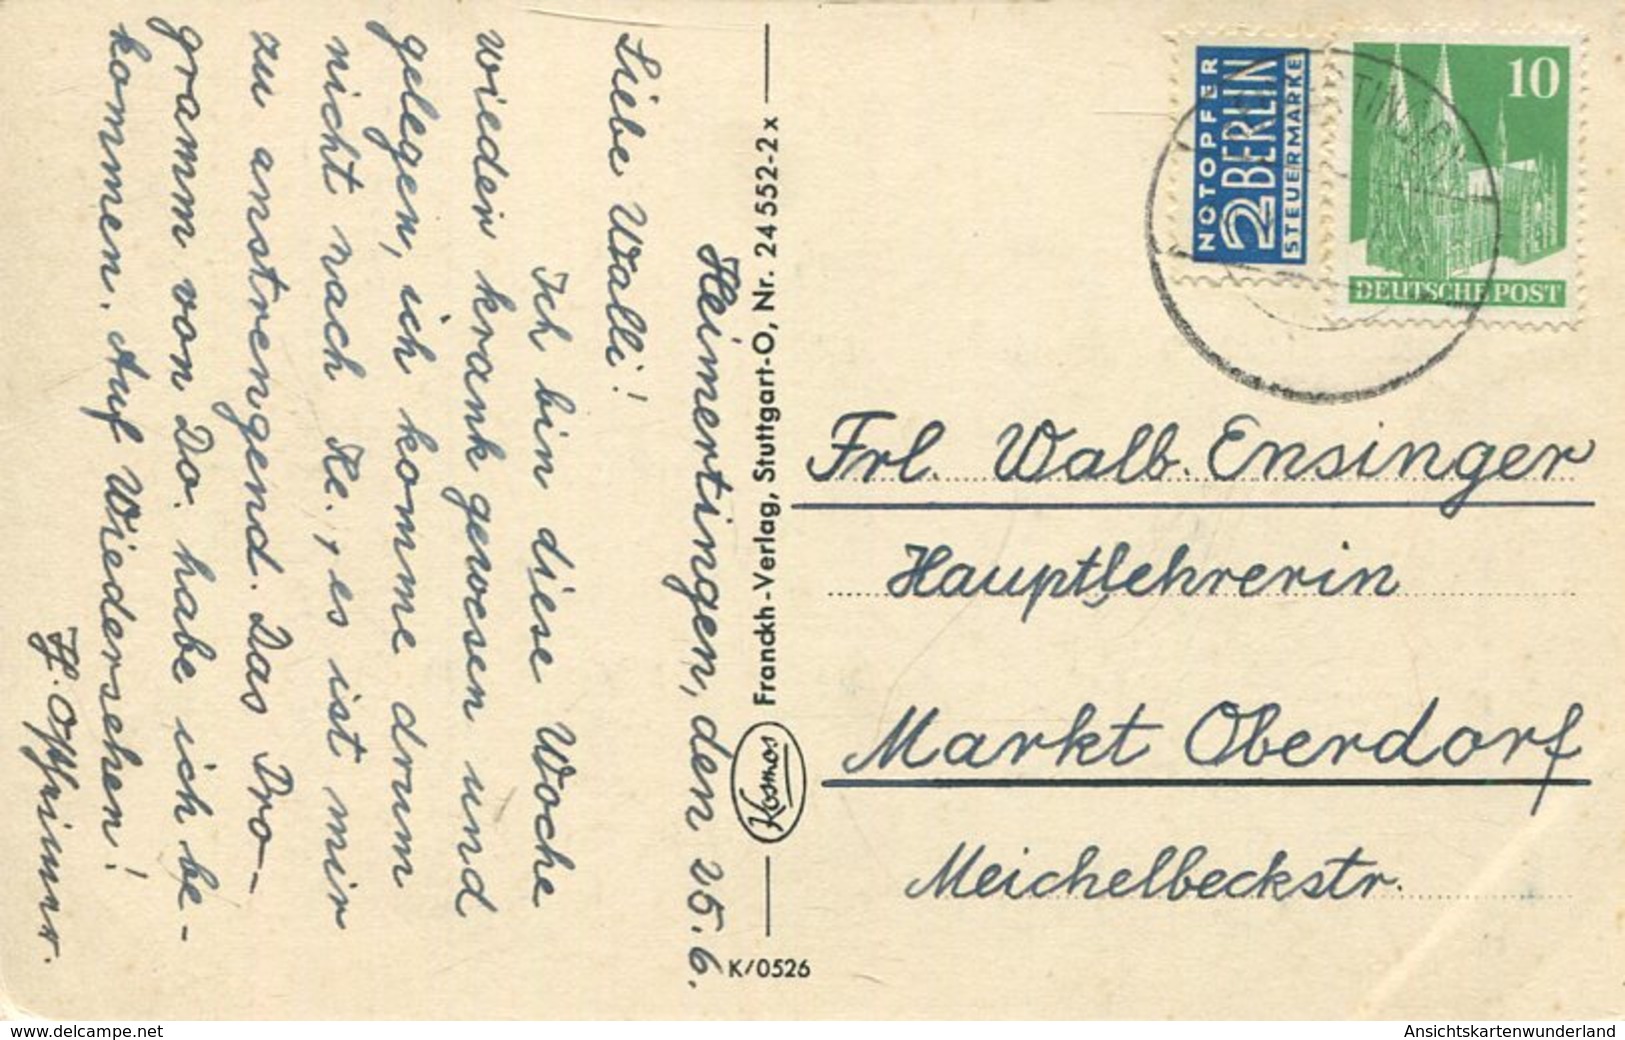 Heimertingen, den 25.6.
Liebe Walli!
Ich bin diese Woche
wieder krank gewesen und
gelegen, ich komme drum
nicht nach He., es ist mir
zu anstrengend. Das Pro-
gramm von Do. habe ich be-
kommen. Auf Wiedersehen!
Franckh-Verlag, Stuttgart-O, Nr. 24 552-2x
Kosmos
K/0526
NOTOPFER
2 BERLIN
STEUERMARKE
10
DEUTSCHE POST
Frl. Walb. Ensinger
Hauptlehrerin
Markt Oberdorf
Meichelbeckstr.
www.delcampe.net
Ansichtskartenwunderland